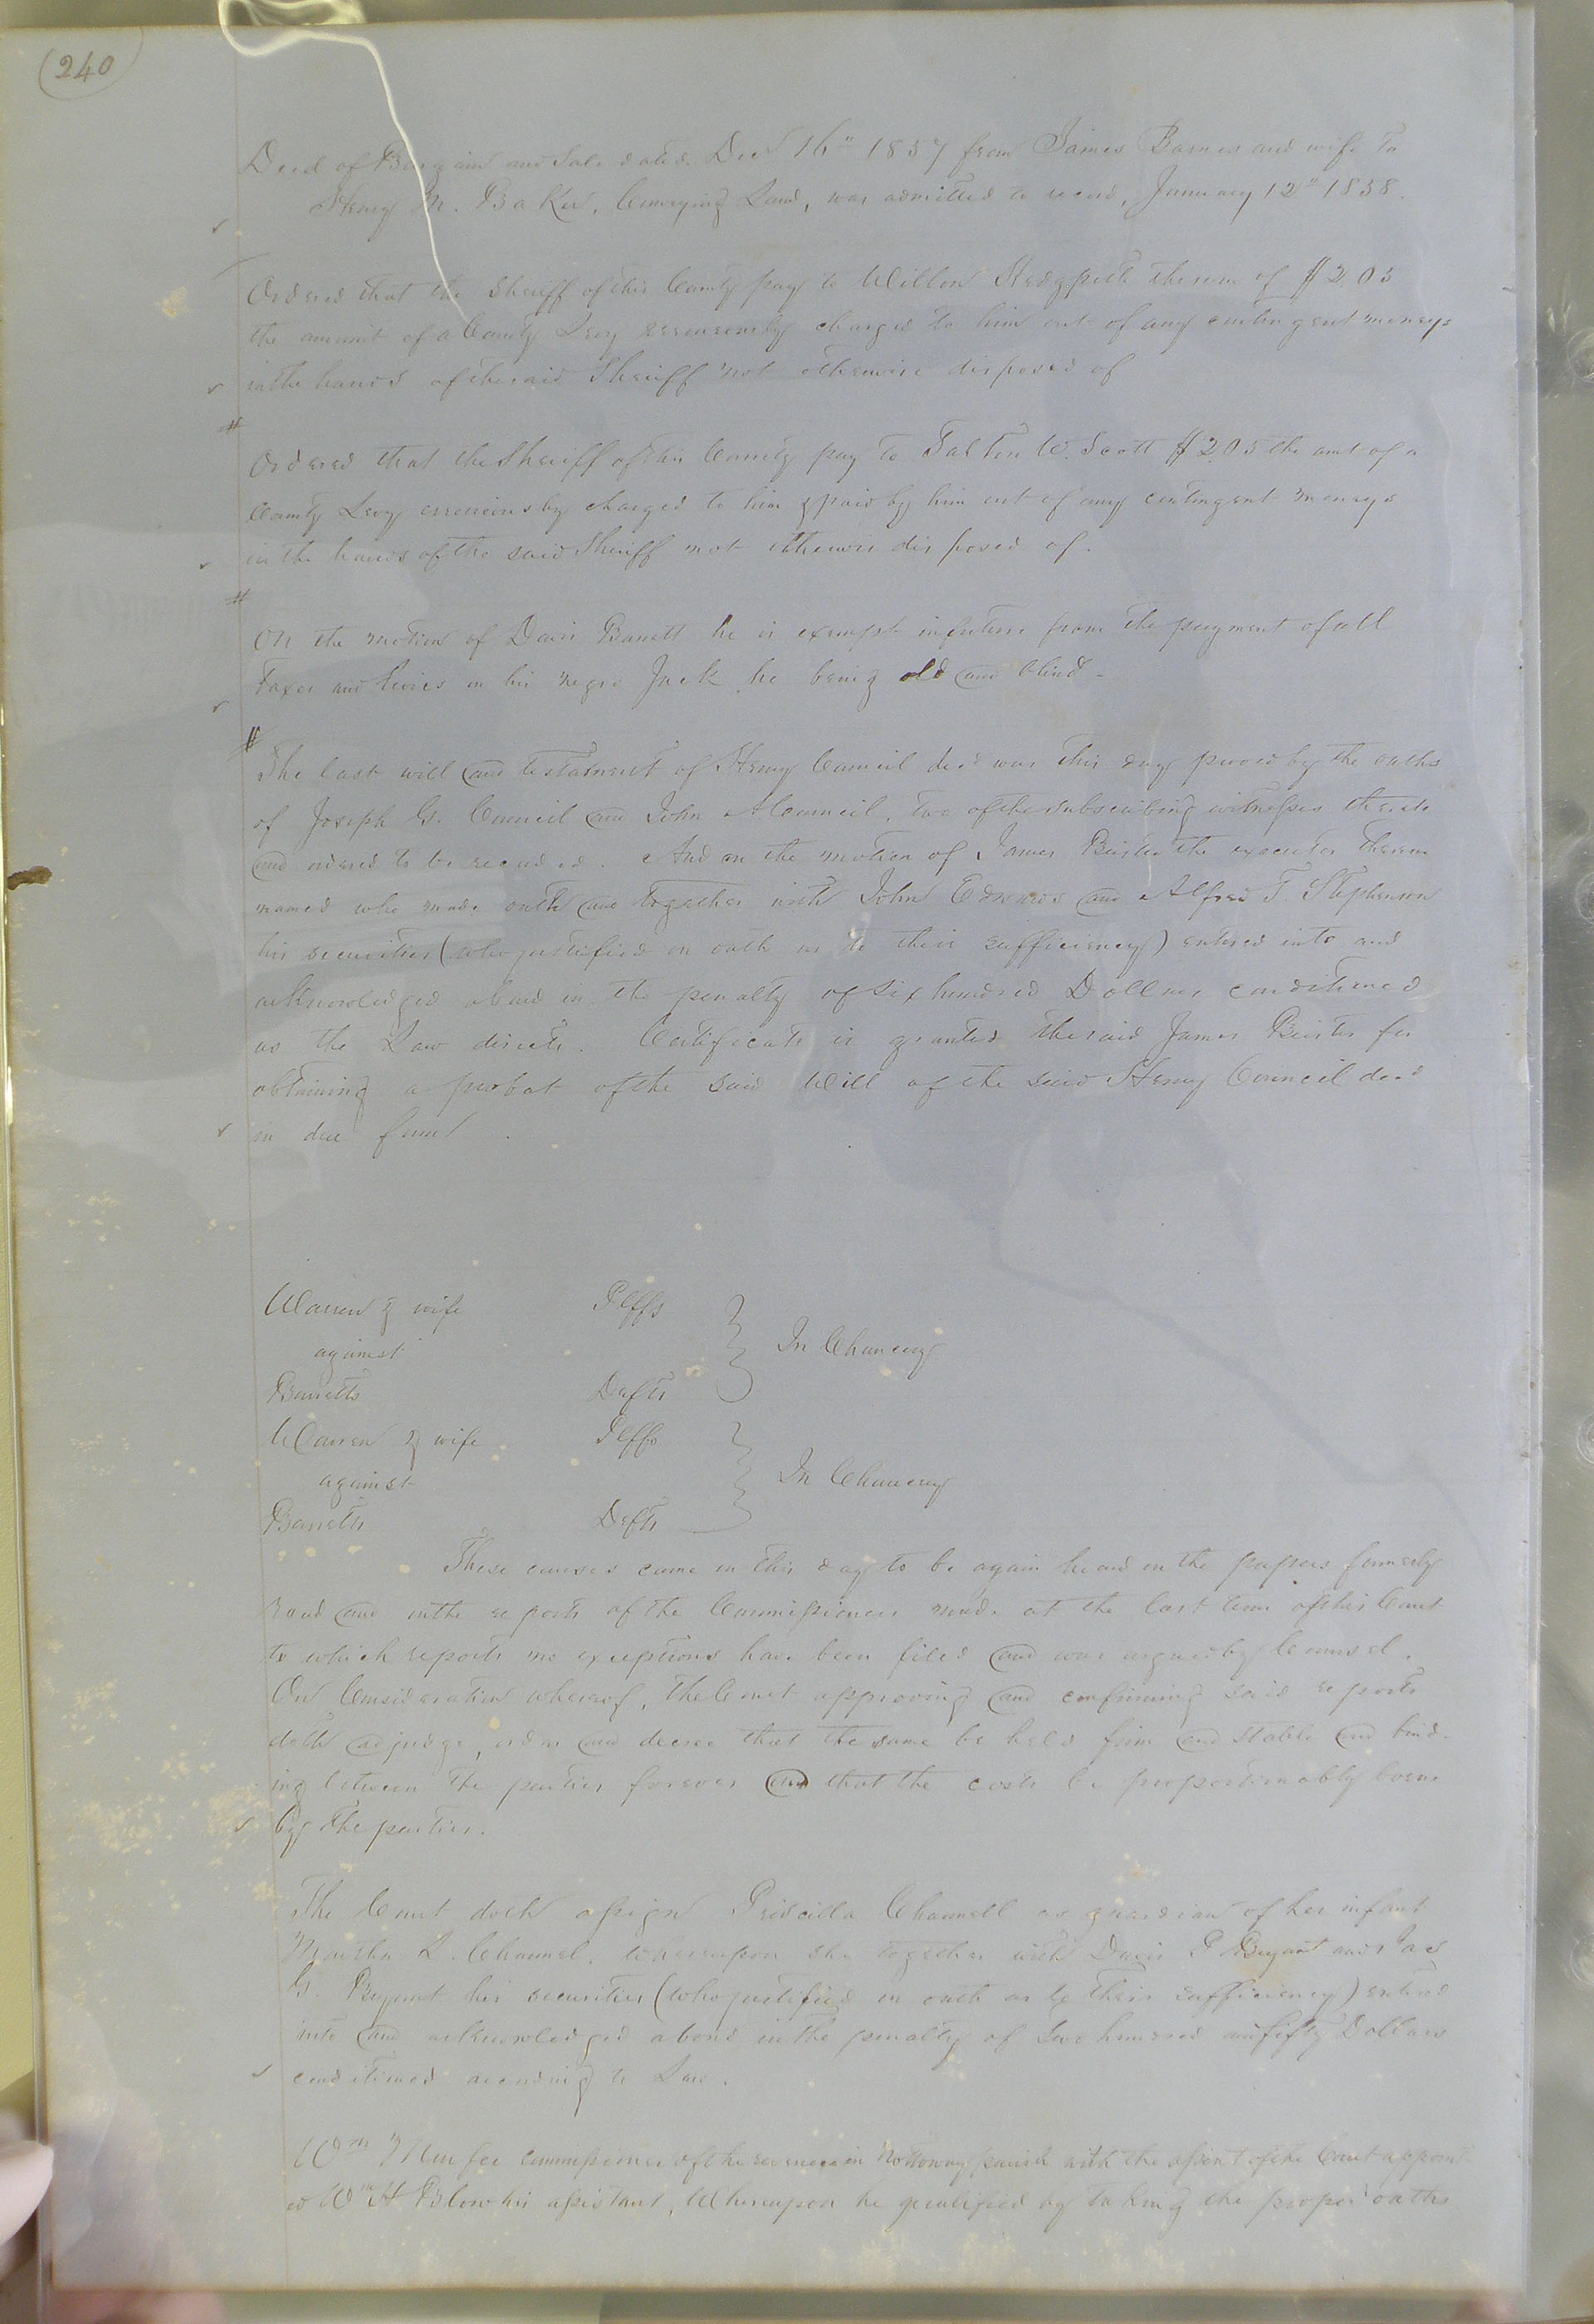 (240
Deed of Bargain and Sale dated Decr 16" 1837 from James Barnes and wife to
Henry M. Baker, Conveying Land, was admitted to record, January 12" 1838.
Ordered that the Sheriff of this County pay to Hedgpeth the sum of $2.05
the amount of a County Levy erroneously charged to him out of any contingent moneys
in the hands of the said Sheriff not otherwise disposed of
Ordered that the Sheriff of this County pay to W. Scott $2.05 the amt of a
County Levy erroneously charged to him & paid by him out of any contingent moneys
in the hands of the said Sheriff not otherwise disposed of.
On the motion of Davis Barrett he is exempt in future from the payment of all
Taxes and levies on his negro Jack he being old and blind -
The last will and testament of Henry Council decd was this day proved by the oaths
of Joseph G. Council and John A Council, two of the subscribing witnesses thereto
and ordered to be recorded. And on the motion of James the executor therein
named who made oath and together with John Edwards and Alfred T. Stephenson
his securities (who justified on oath as to their sufficiency) entered into and
acknowledged a bond in the penalty of six hundred Dollars conditioned
as the Law directs. Certificate is granted the said James for
obtaining a probat of the said Will of the said Henry Council decd
in due form .
Warren & wife Plffs
against In Chancery
Barretts Defts
Warren & wife Plffs
against In Chancery
Barretts Defts
These causes came on this day to be again heard on the papers formerly
read and on the reports of the Commissioners made at the last term of this Court
to which reports no exceptions have been filed and was argued by Counsel.
On Consideration whereof, the Court approving and confirming said reports
doth adjudge, order and decree that the same be held firm and stable and bind-
ing between the parties forever and that the costs be proportionably borne
by the parties.
The Court doth assign Priscilla Channell as guardian of her infant
Martha L. Channel. Whereupon she together with Davis P Bryant and
G. Bryant his securities (who justified on oath as to their sufficiency) entered
into and acknowledged a bond in the penalty of two hundred and fifty Dollars
conditioned according to Law.
Wm Murfee commissioner of the revenue in Nottoway parish with the assent of the Court appoint
ed Wm H Blow his assistant, Whereupon he qualified by taking the proper oaths